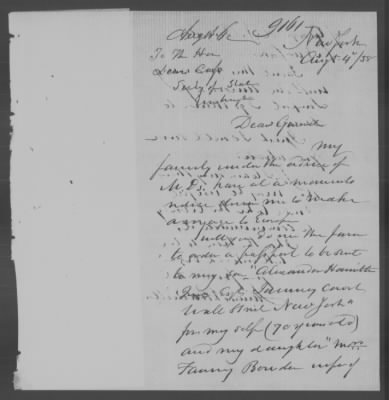 9161
New York
Augt 4/58
To the Hon
Lewis Cass
Secty of State
Washington
Dear General
My
family under the advice of
M.Ds. have at a moments
notice me to
a voyage to Europe
will you do me the favor
to order a passport to be sent
to my son "Alexander Hamilton
Jr
Wall Street New York"
for my self (70 years old)
and my daughter "Mrs
Fanny Bowden wife of